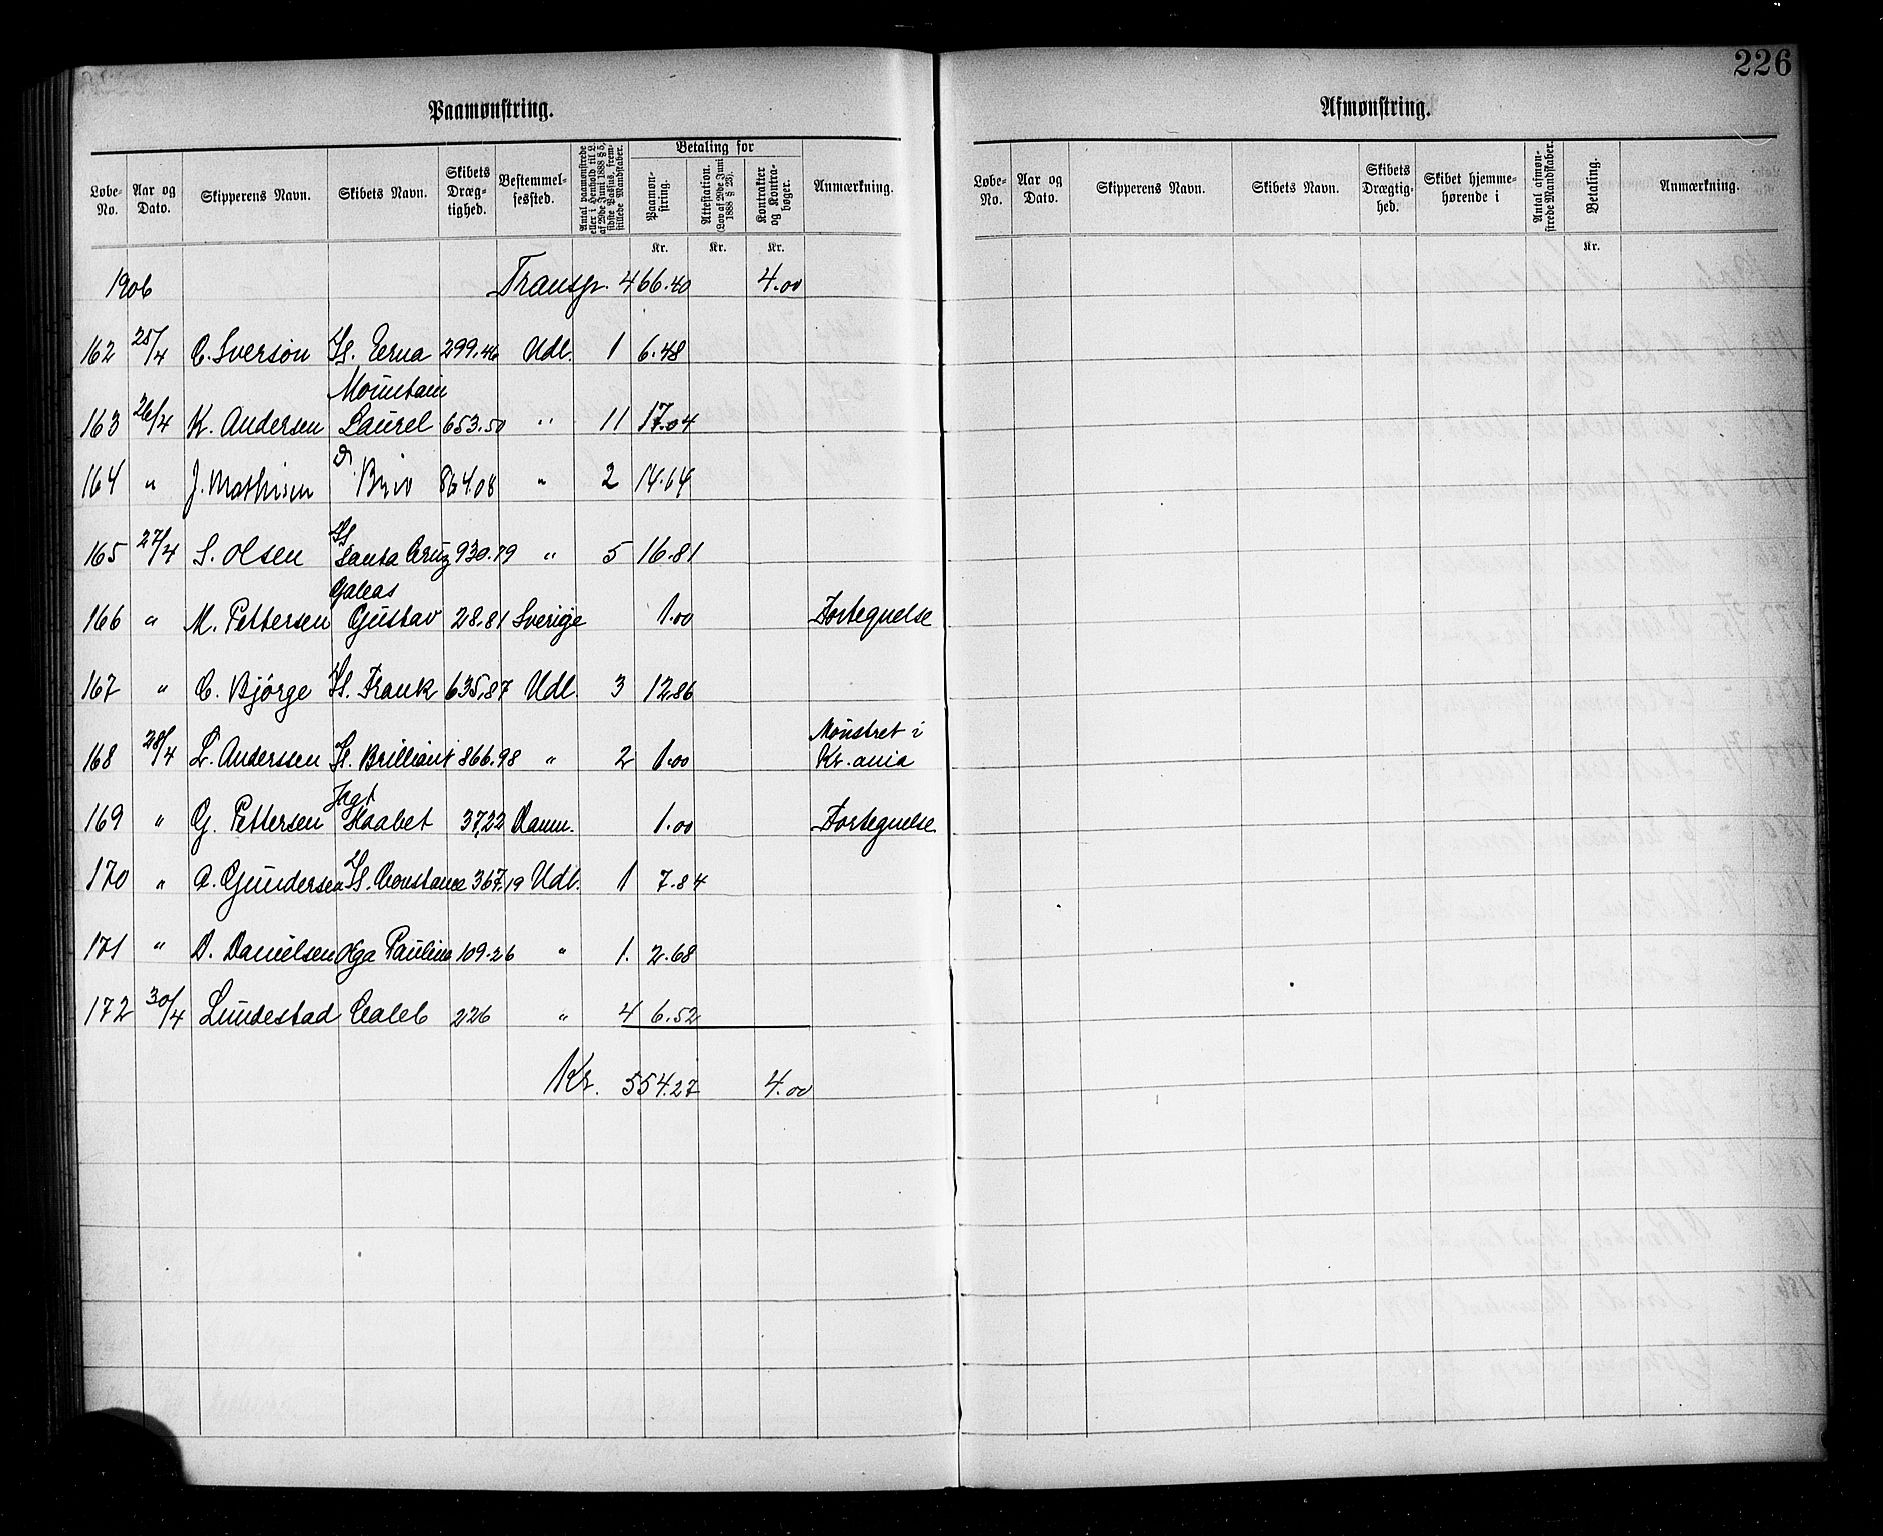 226
Paamønstring.
Løbe-No. Aar og Dato. Skipperens Navn. Skibets Navn. Skibets Dræg-tighed. Bestemmel-sessted. Antal paamønstrede eller i Henhold til L. af 29de Juni 1888 § 5, sidste Passus, frem-stillede Mandskaber. Betaling for Paamøn-string. Attestation. (Lov af 29de Juni 1888 § 23). Kontrakter og Kontra-bøger. Anmærkning.
Kr. Kr. Kr.
1906 Transp. 466.40 4.00
162 25/4 C. Iversøn Sk. Erna 299.46 Udl. 1 6.48
163 26/4 K. Andersen Mountain Laurel 653.50 " 11 17.04
164 " J. Mathisen D. 864.08 " 2 14.64
165 27/4 S. Olsen Sk Santa Cruz 930.79 " 5 16.81
166 " M. Pettersen Galeas Gustav 28.81 Sverige 1.00 Fortegnelse
167 " C. Bjørge Sk. Frank 635,87 Udl. 3 12.86
168 28/4 L. Anderssen Sk. Brilliant 866.98 " 2 1.00 Mønstret i Kr.ania
169 " G. Pettersen Jagt Haabet 37,22 Danm. 1.00 Fortegnelse
170 " A. Gundersen Sk. Constance 367.19 Udl. 1 7.84
171 " D. Danielsen Olga Pauline 109.26 " 1. 2.68
172 30/4 Lundestad Caleb 226 " 4 6.52
Kr. 554.27 4.00
Afmønstring.
Løbe-No. Aar og Dato. Skipperens Navn. Skibets Navn. Skibets Drægtig-hed. Skibet hjemme-hørende i Antal afmøn-strede Mandskaber. Betaling. Anmærkning.
Kr.